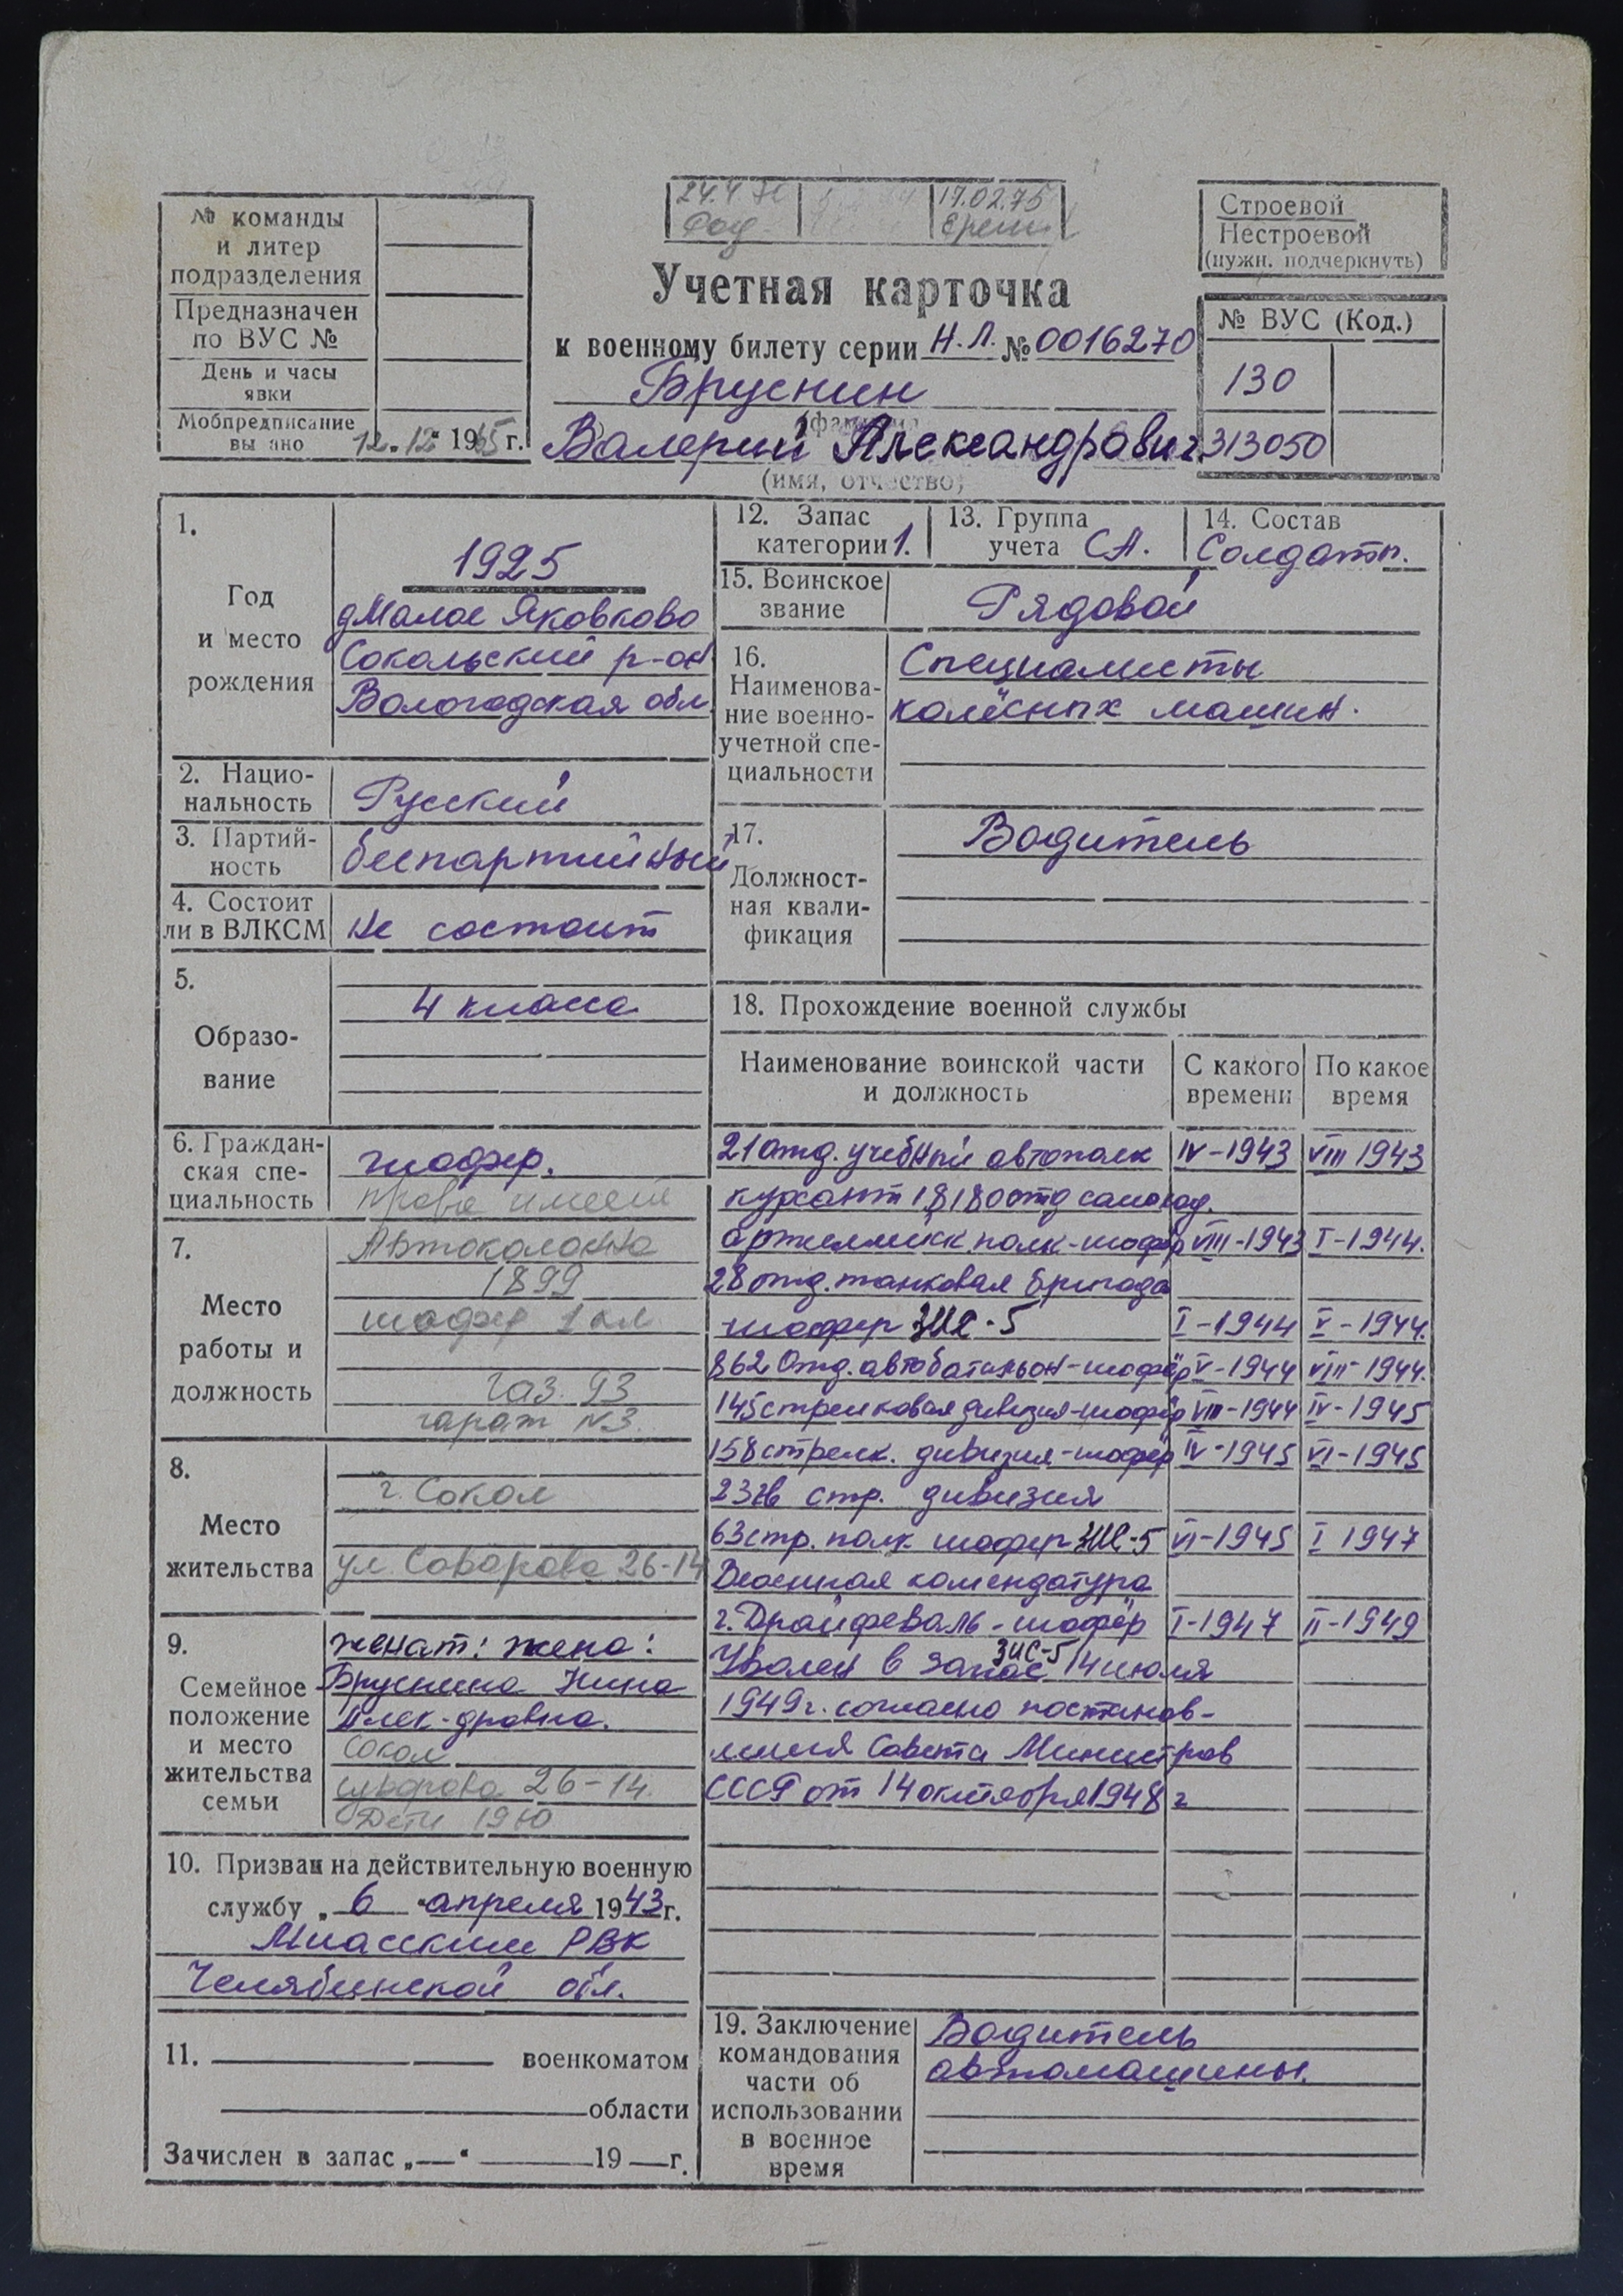 № команды
и литер
подразделения
Предназначен
по ВУС №
День и часы
явки
Мобпредписание
вы ано 12.12 1965 г.
24.4 72 17.02.75
Учетная карточка
к военному билету серии Н.Л. № 0016270
Бруснин
Валерий Александрович
(имя, отчество)
Строевой
Нестроевой
(нужн. подчеркнуть)
№ ВУС (Код.)
130
313050
1.
Год
и место
рождения
1925
д Малое Яковково
Сокольский р-он
Вологодская обл.
2. Нацио-
нальность
Русский
3. Партий-
ность
беспартийный
4. Состоит
ли в ВЛКСМ
Не состоит
5.
Образо-
вание
4 класса
6. Граждан-
ская спе-
циальность
шофер.
права имеет
7.
Место
работы и
должность
Автоколонна
1899
шофер 1 кл
газ. 93
гараж N3.
8.
Место
жительства
г. Сокол
ул. Суворова 26-14
9.
Семейное
положение
и место
жительства
семьи
женат: жена:
Бруснина Нина
Алек-дровна.
Сокол
Суворова 26-14.
Дети
10. Призван на действительную военную
службу „ 6 “ апреля 1943 г.
Миасским РВК
Челябинской обл.
11. военкоматом
области
Зачислен в запас „—“ 19 — г.
12. Запас
категории 1.
13. Группа
учета СА.
14. Состав
Солдаты.
15. Воинское
звание
Рядовой
16.
Наименова-
ние военно-
учетной спе-
циальности
Специалисты
колёсных машин.
17.
Должност-
ная квали-
фикация
Водитель
18. Прохождение военной службы
Наименование воинской части
и должность
С какого
времени
По какое
время
21 отд. учебный автополк IV-1943 VIII 1943
курсант 1818 отд самоход.
артиллийск полк-шофёр VIII-1943 I-1944.
28 отд. танковая бригада
шофер ЗИС-5 I-1944 V-1944.
862 Отд. автобатальон-шофёр V-1944 VIII-1944.
145 стрелковая дивизия-шофёр VIII-1944 IV-1945
158 стрелк. дивизия-шофёр IV-1945 VI-1945
23 гв стр. дивизия
63 стр. полк шофер ЗИС-5 VI-1945 I 1947
Военная комендатура
г. Драйфеваль-шофёр I-1947 II-1949
ЗИС-5
Уволен в запас 14 июля
1949 г. согласно постанов-
ления Совета Министров
СССР от 14 октября 1948 г
19. Заключение
командования
части об
использовании
в военное
время
Водитель
автомашины.